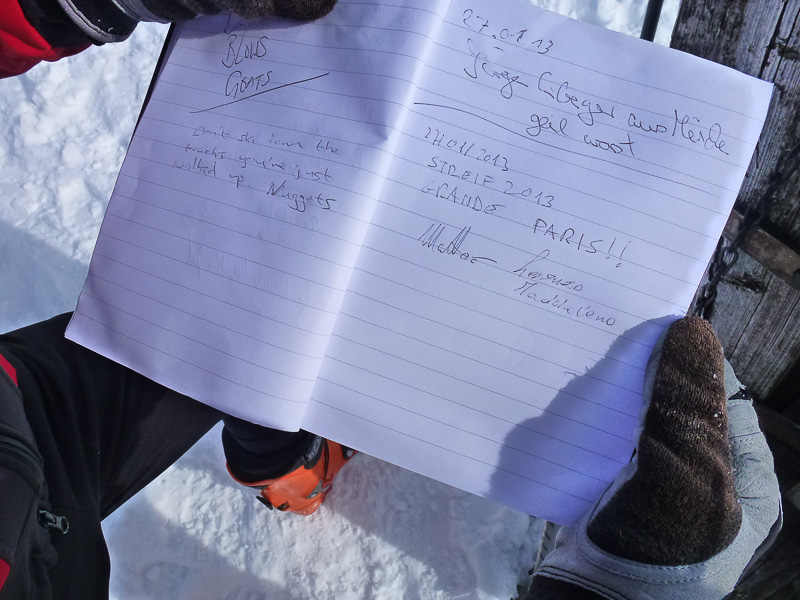 BLOWS
GOATS
Don't ski down the
tracks you've just
walked up. Nuggets
27.01.13
aus
geil woat
27/01/2013
STREIF 2013
GRANDE PARIS!!
Matteo Lorenzo
Maddalena